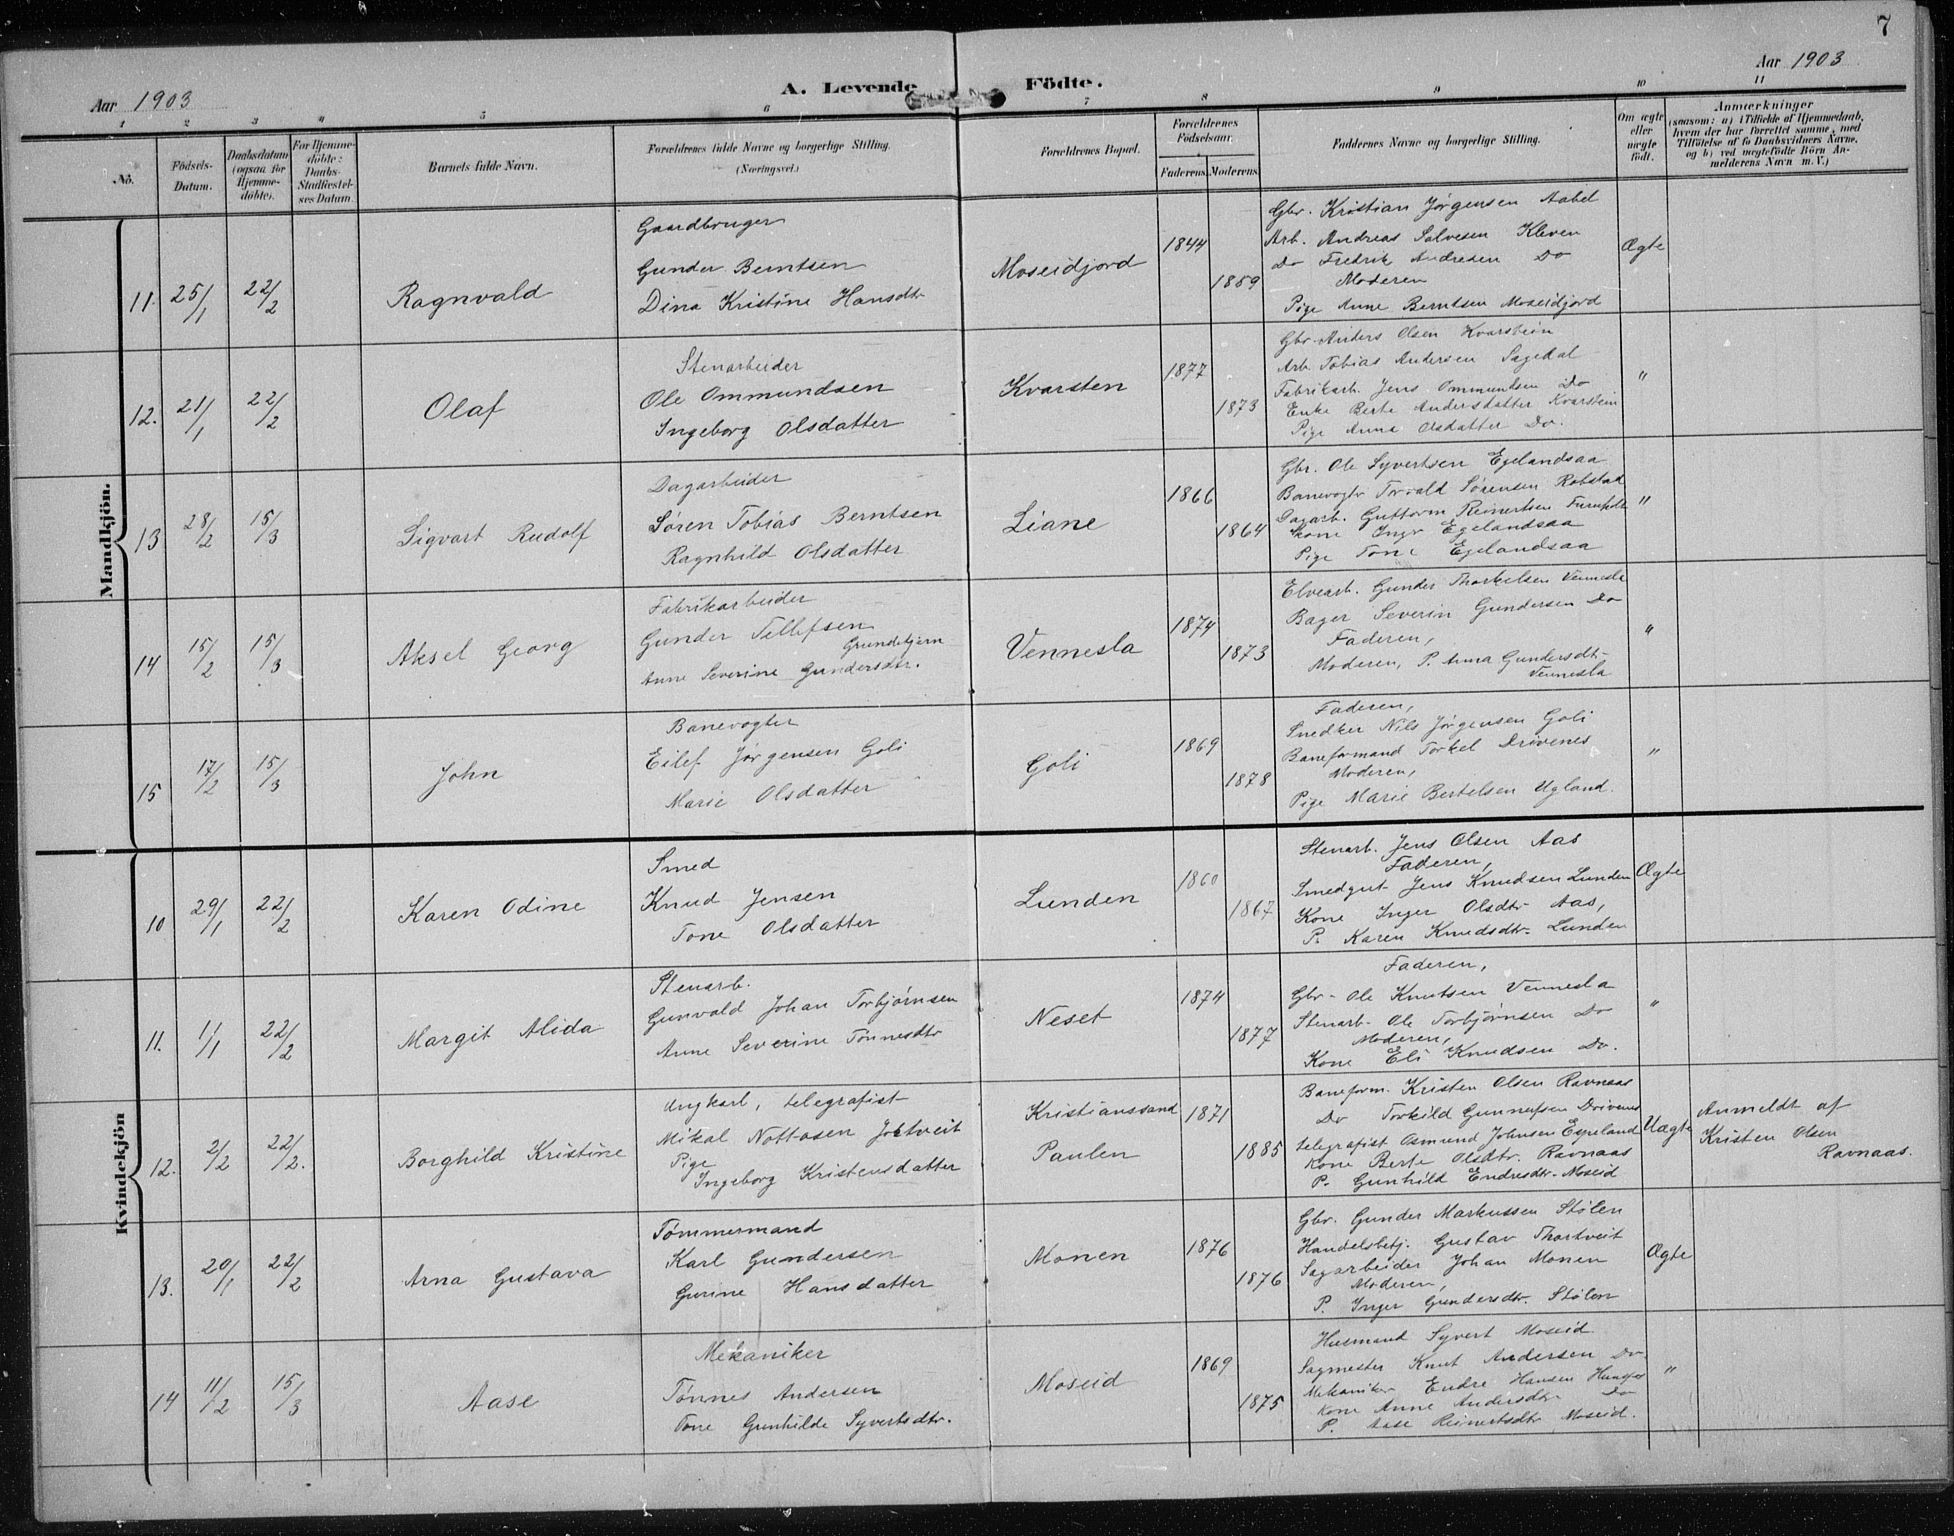 7
Aar 1903
A. Levende Födte.
Aar 1903
1 2 3 4 5 6 7 8 9 10 11
No.
Födsels-Datum.
Daabsdatum (ogsaa for Hjemmedöbte).
For Hjemmedöbte: Daabs-Stadfæstelses Datum.
Barnets fulde Navn.
Forældrenes fulde Navne og borgerlige Stilling.
(Næringsvei.)
Forældrenes Bopæl.
Forældrenes Födselsaar.
Faderens. Moderens.
Faddernes Navne og borgerlige Stilling.
Om ægte eller uægte födt.
Anmærkninger
(saasom: a) i Tilfælde af Hjemmedaab, hvem der har forrettet samme, med Tilföielse af to Daabsvidners Navne, og b) ved uægtefödte Börn Anmelderens Navn m. V.)
Mandkjön.
11. 25/1 22/2
Ragnvald
Gaardbruger
Gunder Berntsen
Dina Kristine Hansdtr
Moseidjord
1844
1859
Gbr. Kristian Jørgensen Aabel
Arb. Andreas Salvesen Kleven
Do Fredrik Andresen Do
Moderen
Pige Anne Berntsen Moseidjord
Ægte
12. 21/1 22/2
Olaf
Stenarbeider
Ole Ommundsen
Ingeborg Olsdatter
Kvarsten
1877
1873
Gbr. Anders Olsen Kvarstein
Arb. Tobias Andersen Sagedal
Fabrikarb. Jens Ommundsen Do
Enke Berte Andersdatter Kvarstein
Pige Anna Olsdatter Do.
"
13 28/2 15/3
Sigvart Rudolf
Dagarbeider
Søren Tobias Berntsen
Ragnhild Olsdatter
Liane
1866
1864
Gbr. Ole Syvertsen Egelandsaa
Banevogter Torvald Sørensen Robstad
Dagarb. Guttorm Reinertsen
Kone Inger Egelandsaa
Pige Tone Egelandsaa
"
14 15/2 15/3
Aksel Georg
Fabrikarbeider
Gunder Tellefsen
Grundetjern
Anne Severine Gundersdtr.
Vennesla
1874
1873
Elvearb. Gunder Thorkelsen Vennesla
Bager Severin Gundersen Do
Faderen,
Moderen, P. Anna Gundersdtr.
Vennesla
"
15 17/2 15/3
John
Banevogter
Eilef Jørgensen Goli
Marie Olsdatter
Goli
1869
1878
Faderen,
Snedker Nils Jørgensen Goli
Baneformand Torkel Drivenes
Moderen,
Pige Marie Bertelsen Ugland.
"
Kvindekjön
10 29/1 22/2
Karen Odine
Smed
Knud Jensen
Tone Olsdatter
Lunden
1860
1867
Stenarb. Jens Olsen Aas
Faderen,
Smedgut Jens Knudsen Lunden
Kone Inger Olsdtr Aas,
P. Karen Knudsdtr. Lunden
Ægte
11. 1/1 22/2
Margit Alida
Stenarb.
Gunvald Johan Torbjørnsen
Anne Severine Tønnesdtr
Neset
1874
1877
Faderen,
Gbr. Ole Knutsen Vennesla
Stenarb. Ole Torbjørnsen Do
Moderen,
Kone Eli Knudsen Do.
"
12. 2/2 22/2.
Borghild Kristine
Ungkarl, telegrafist
Mikal Nottosen Jortveit
Pige
Ingeborg Kristensdatter
Kristianssand
Paulen
1871
1885
Baneform. Kristen Olsen Ravnaas
Do Torkild Gunnufsen Drivenes
telegrafist Osmund Johnsen Egeland
Kone Berte Olsdtr. Ravnaas
P. Gunhild Endresdtr. Moseid
Uægte
Anmeldt af
Kristen Olsen
Ravnaas.
13. 20/1 22/2
Arna Gustava
Tømmermand
Karl Gundersen
Gurine Hansdatter
Monen
1876
1876
Gbr. Gunder Markussen Stølen
Handelsbetj. Gustav Thortveit
Sagarbeider Johan Monen
Moderen,
P. Inger Gundersdtr. Stølen
Ægte
14 11/2 15/3
Aase
Mekaniker
Tønnes Andersen
Tone Gunhilde Syvertsdtr.
Moseid
1869
1875
Husmand Syvert Moseid
Sagmester Knut Andersen Do.
Mekaniker Endre Hansen
Kone Anne Andersdtr Do
P. Aase Reinertsdtr Moseid.
"